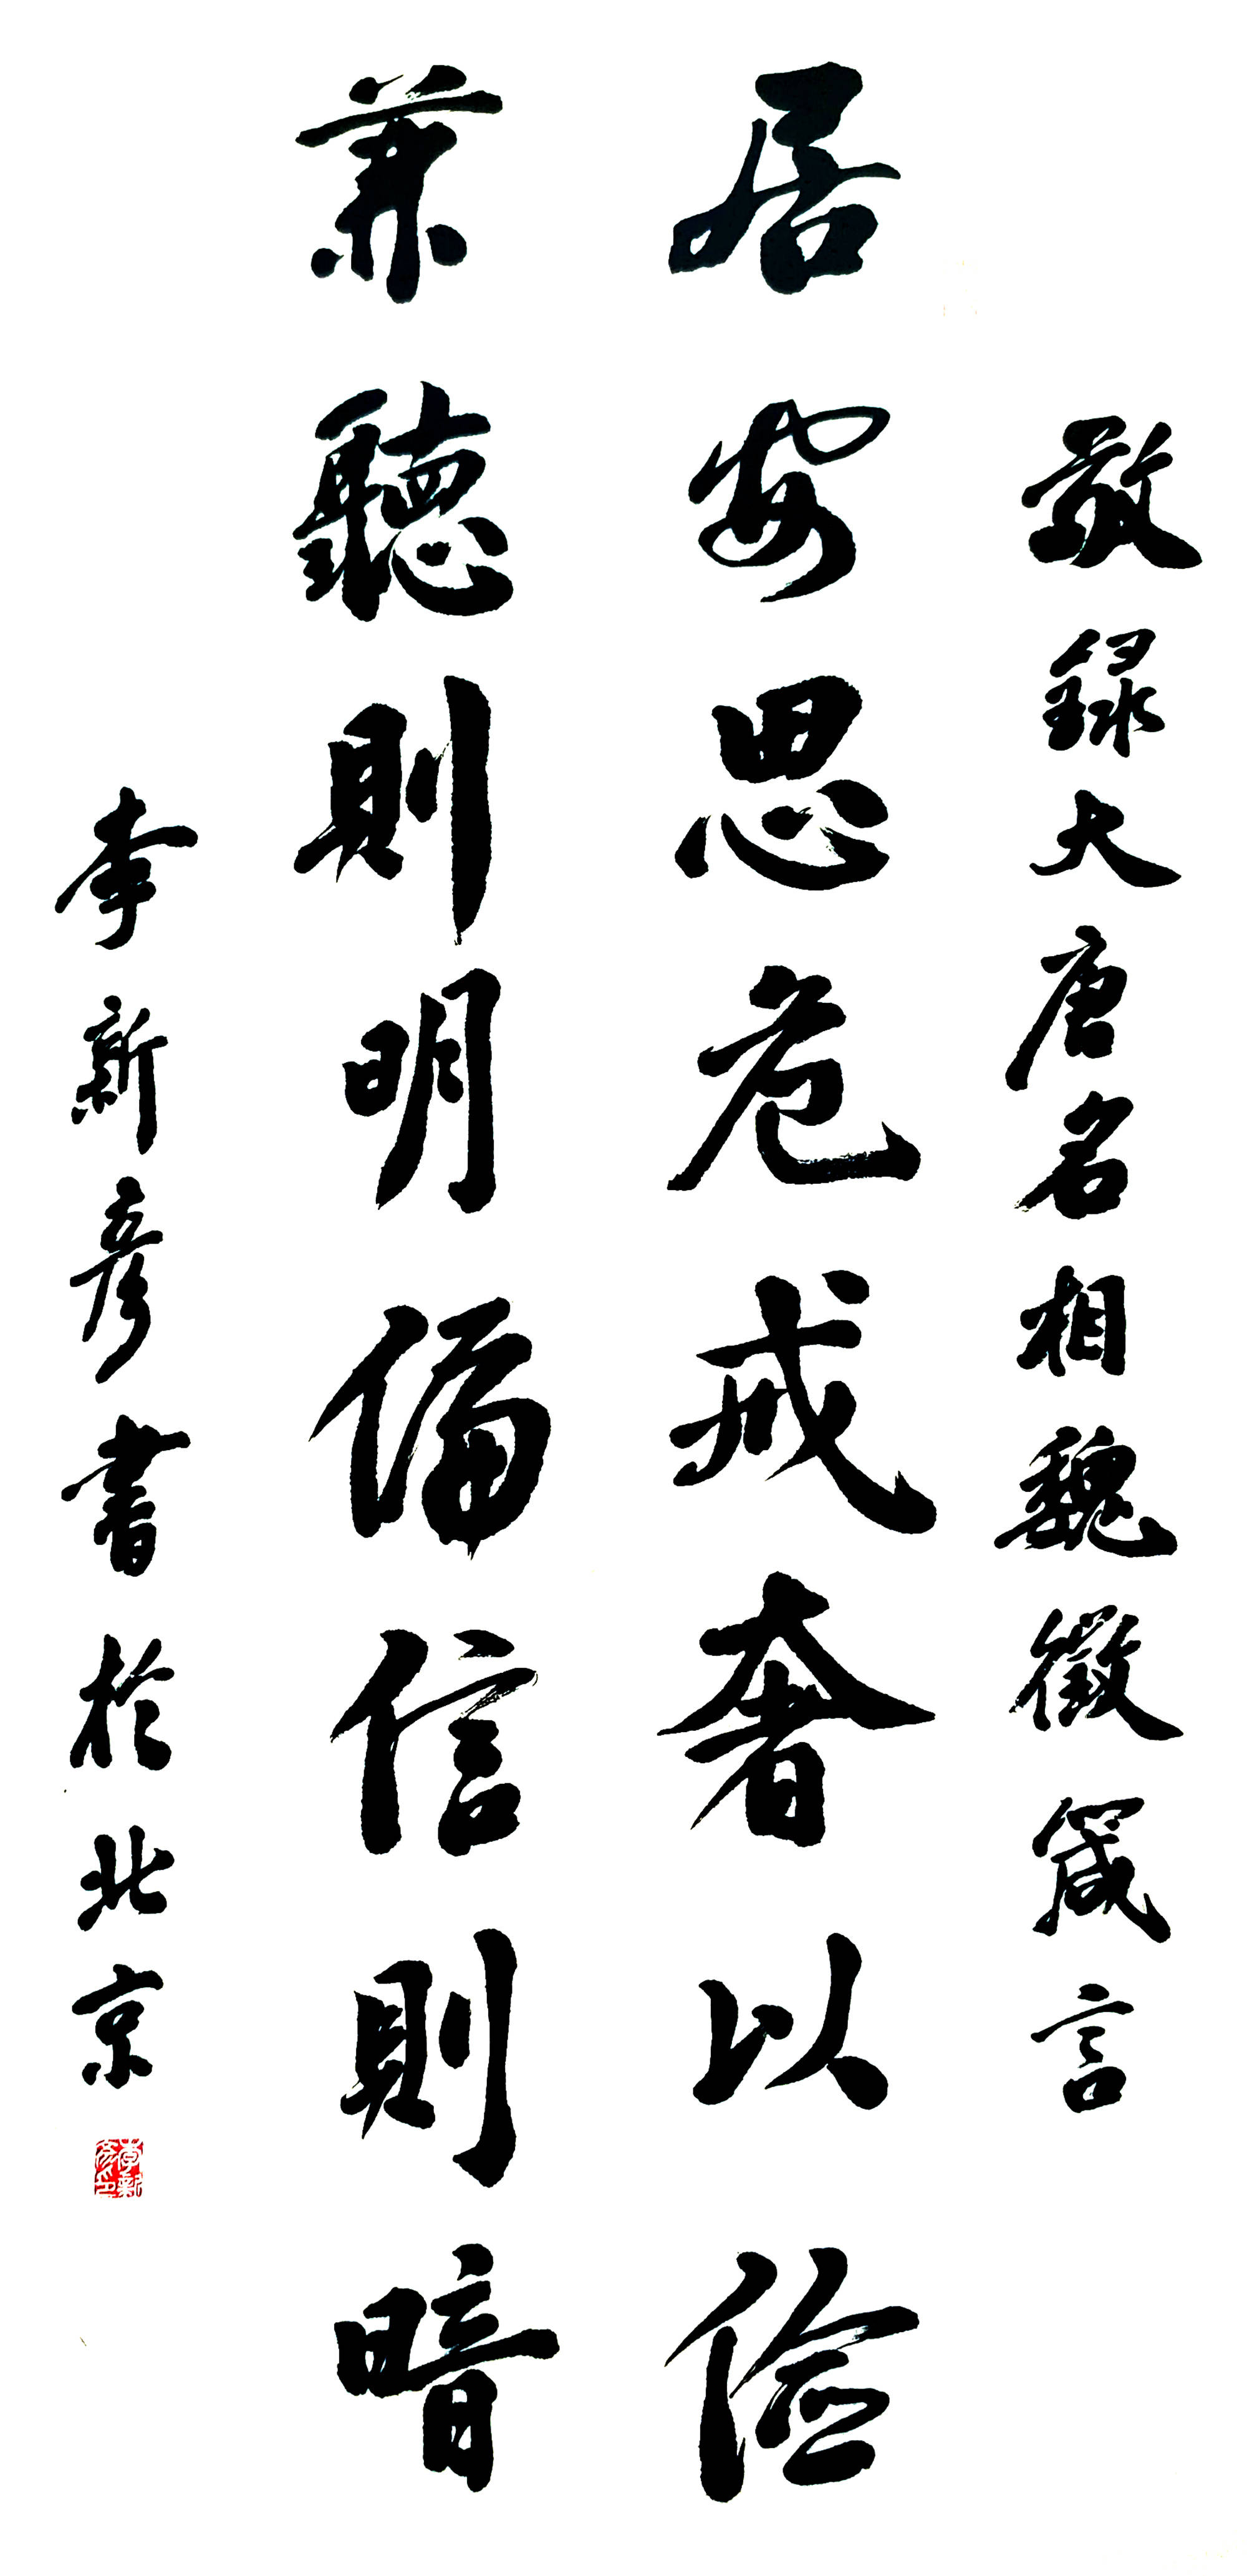 敬録大唐名相魏徵箴言
居安思危戒奢以儉
兼聽則明偏信則暗
李新彦書於北京
李新彦印